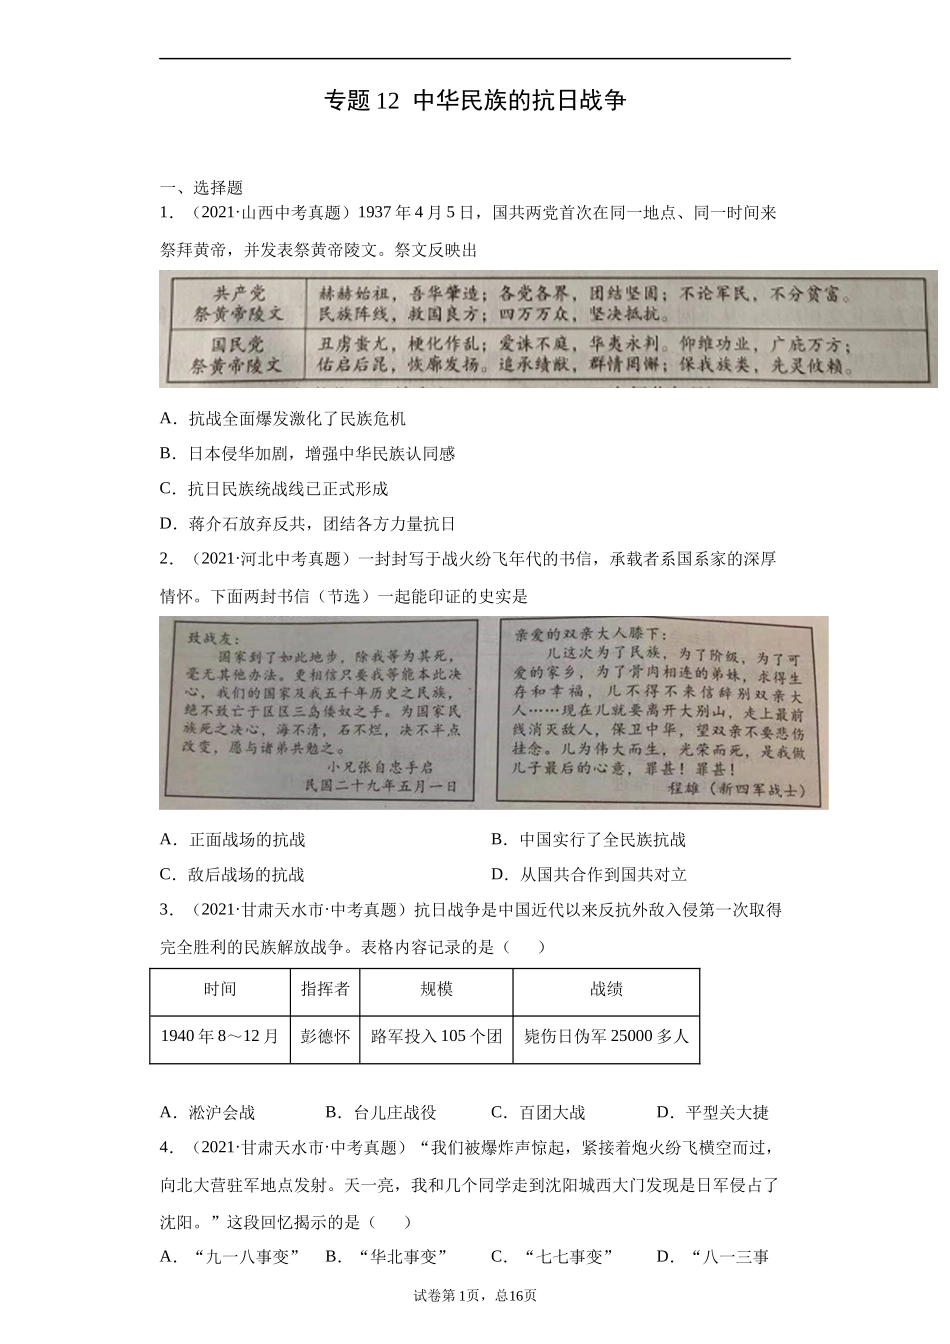 专题 12 中华民族的抗日战争
一、选择题
1．（2021·山西中考真题）1937 年 4 月 5 日，国共两党首次在同一地点、同一时间来
祭拜黄帝，并发表祭黄帝陵文。祭文反映出
共产党
祭黄帝陵文
赫赫始祖，吾华肇造；各党各界，团结坚固；不论军民，不分贫富。
民族阵线，救国良方；四万万众，坚决抵抗。
国民党
祭黄帝陵文
丑虏蚩尤，梗化作乱；爱诛不庭，华夷永判。仰维功业，广庇万方；
佑启后昆，恢廓发扬。追承绩猷，群情罔懈；保我族类，先灵攸赖。
A．抗战全面爆发激化了民族危机
B．日本侵华加剧，增强中华民族认同感
C．抗日民族统战线已正式形成
D．蒋介石放弃反共，团结各方力量抗日
2．（2021·河北中考真题）一封封写于战火纷飞年代的书信，承载者系国系家的深厚
情怀。下面两封书信（节选）一起能印证的史实是
致战友：
国家到了如此地步，除我等为其死，
毫无其他办法。更相信只要我等能本此决
心，我们的国家及我五千年历史之民族，
绝不致亡于区区三岛倭奴之手。为国家民
族死之决心，海不清，石不烂，决不半点
改变，愿与诸弟共勉之。
小兄张自忠手启
民国二十九年五月一日
亲爱的双亲大人膝下：
儿这次为了民族，为了阶级，为了可
爱的家乡，为了骨肉相连的弟妹，求得生
存和幸福，儿不得不来信辞别双亲大
人……现在儿就要离开大别山，走上最前
线消灭敌人，保卫中华，望双亲不要悲伤
挂念。儿为伟大而生，光荣而死，是我做
儿子最后的心意，罪甚！罪甚！
程雄（新四军战士）
A．正面战场的抗战 B．中国实行了全民族抗战
C．敌后战场的抗战 D．从国共合作到国共对立
3．（2021·甘肃天水市·中考真题）抗日战争是中国近代以来反抗外敌入侵第一次取得
完全胜利的民族解放战争。表格内容记录的是（ ）
时间 指挥者 规模 战绩
1940 年 8～12 月 彭德怀 路军投入 105 个团 毙伤日伪军 25000 多人
A．淞沪会战 B．台儿庄战役 C．百团大战 D．平型关大捷
4．（2021·甘肃天水市·中考真题）“我们被爆炸声惊起，紧接着炮火纷飞横空而过，
向北大营驻军地点发射。天一亮，我和几个同学走到沈阳城西大门发现是日军侵占了
沈阳。”这段回忆揭示的是（ ）
A．“九一八事变” B．“华北事变” C．“七七事变” D．“八一三事
试卷第 1页，总16页